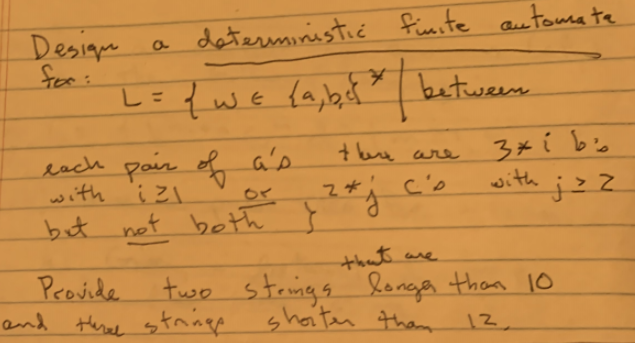 Design a deterministic finite automate
for:
L = { w ∈ {a,b,c}* | between
each pair of a's there are 3*i b's
with i≥1 or 2*j c's with j ≥ 2
but not both }
that are
Provide two strings longer than 10
and three strings shorter than 12.